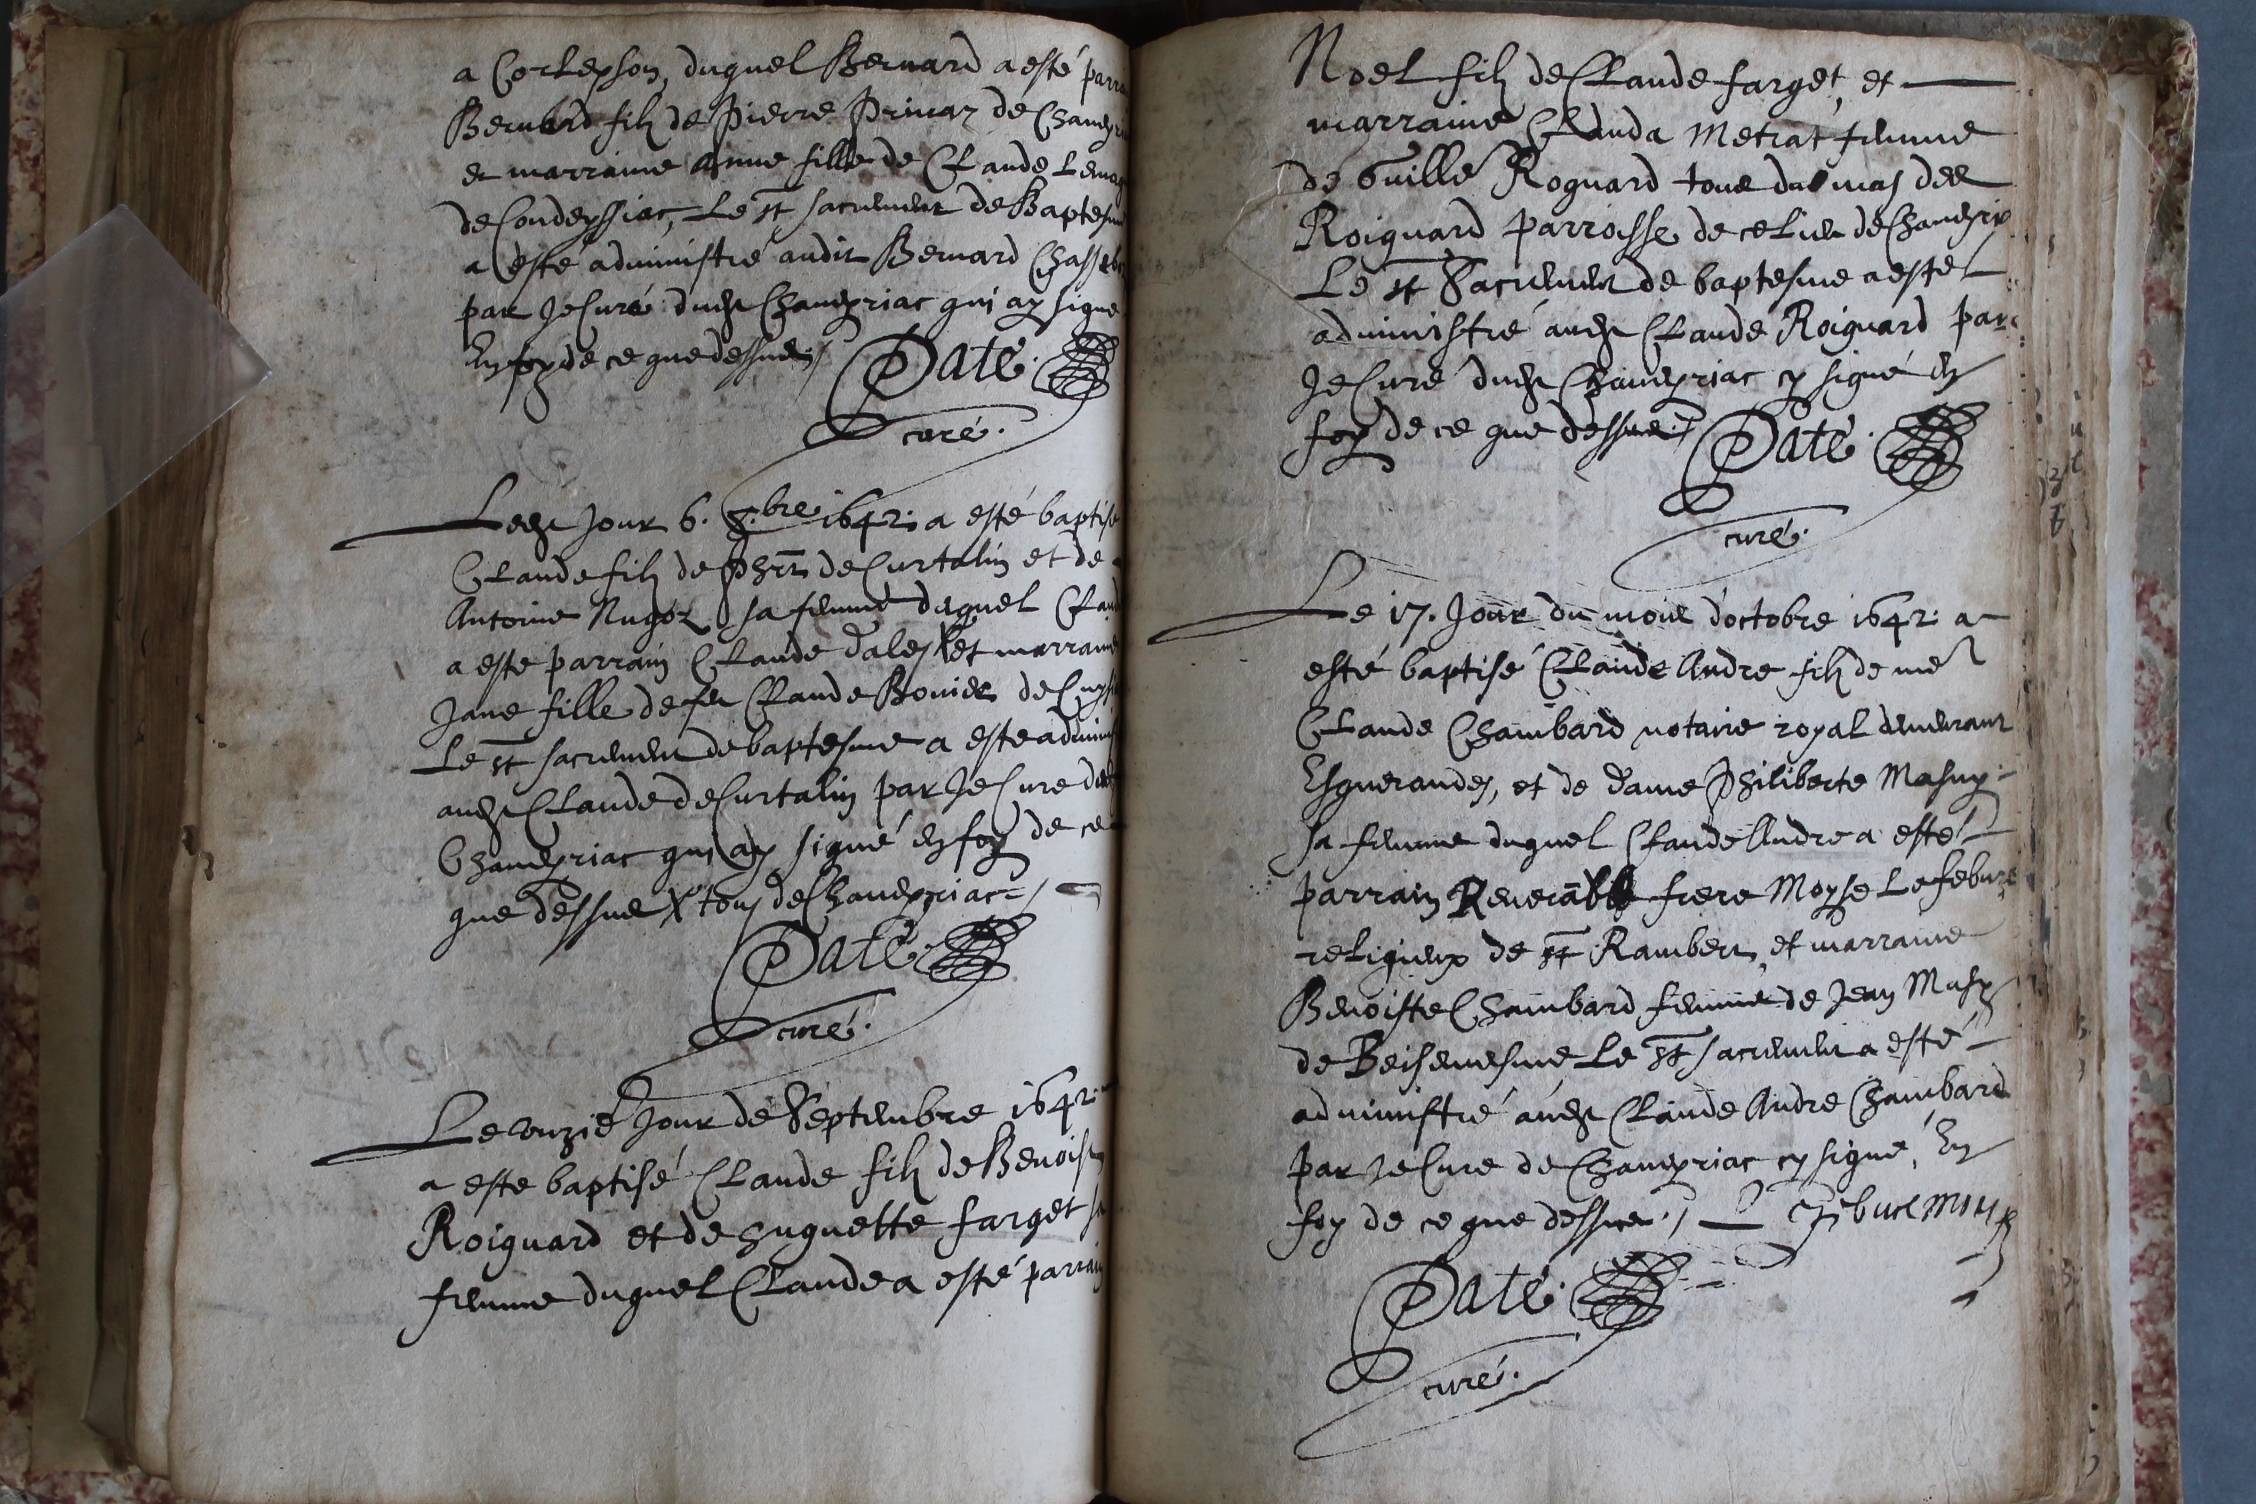 a Corlesson, duquel Bernard a esté parra
Bernard filz de Pierre Privaz de Chaveyri
et marraine Anne fille de Claude
de Condeyssiat, Le st sacrement de Baptesm
a esté administré audit Bernard
par Je Curé dudt Chaveyriac qui ay signé
En foy de ce que dessus
Daté
curé.
Ledt jour 6. 8.bre 1642. a esté baptisé
Claude filz de Phrt de Curtalin et de
Antoine sa femme duquel Claud
a este parrain Claude Dalex et marraine
Jane fille de feu Claude Bovier de
Le st sacrement de baptesme a este admini
audt Claude de Curtalin par Je Cure dudt
Chaveyriac qui ay signé en foy de ce
que dessus X tous de Chaveyriac
Daté
curé.
Le onzie jour de Septembre 1642.
a este baptisé Claude filz de Benoist
Roiguard et de huguette farget sa
femme duquel Claude a esté parrain
Noel filz de Claude farget, et
marraine Clauda Metrat femme
de Guille Roguard tous du mas des
Roiguard parroisse de ce lieu de Chaveyria
Le st Sacrement de baptesme a esté
administré audt Claude Roiguard par
Je Curé dudt Chaveyriac cy signé En
foy de ce que dessus
Daté
curé.
Le 17. Jour du mois d'octobre 1642. a
esté baptisé Claude Andre filz de me
Claude Chambard notaire royal demeurant
Esguerandes, et de dame Philiberte Masuy
sa femme duquel Claude Andre a esté
parrain frere Moyse Lefebure
religieux de st Rambert, et marraine
Benoiste Chambard femme de Jean Masuy
de Le st sacrement a esté
administré audt Claude Andre Chambard
par Je Cure de Chaveyriac cy signé, En
foy de ce que dessus
Daté
curé.